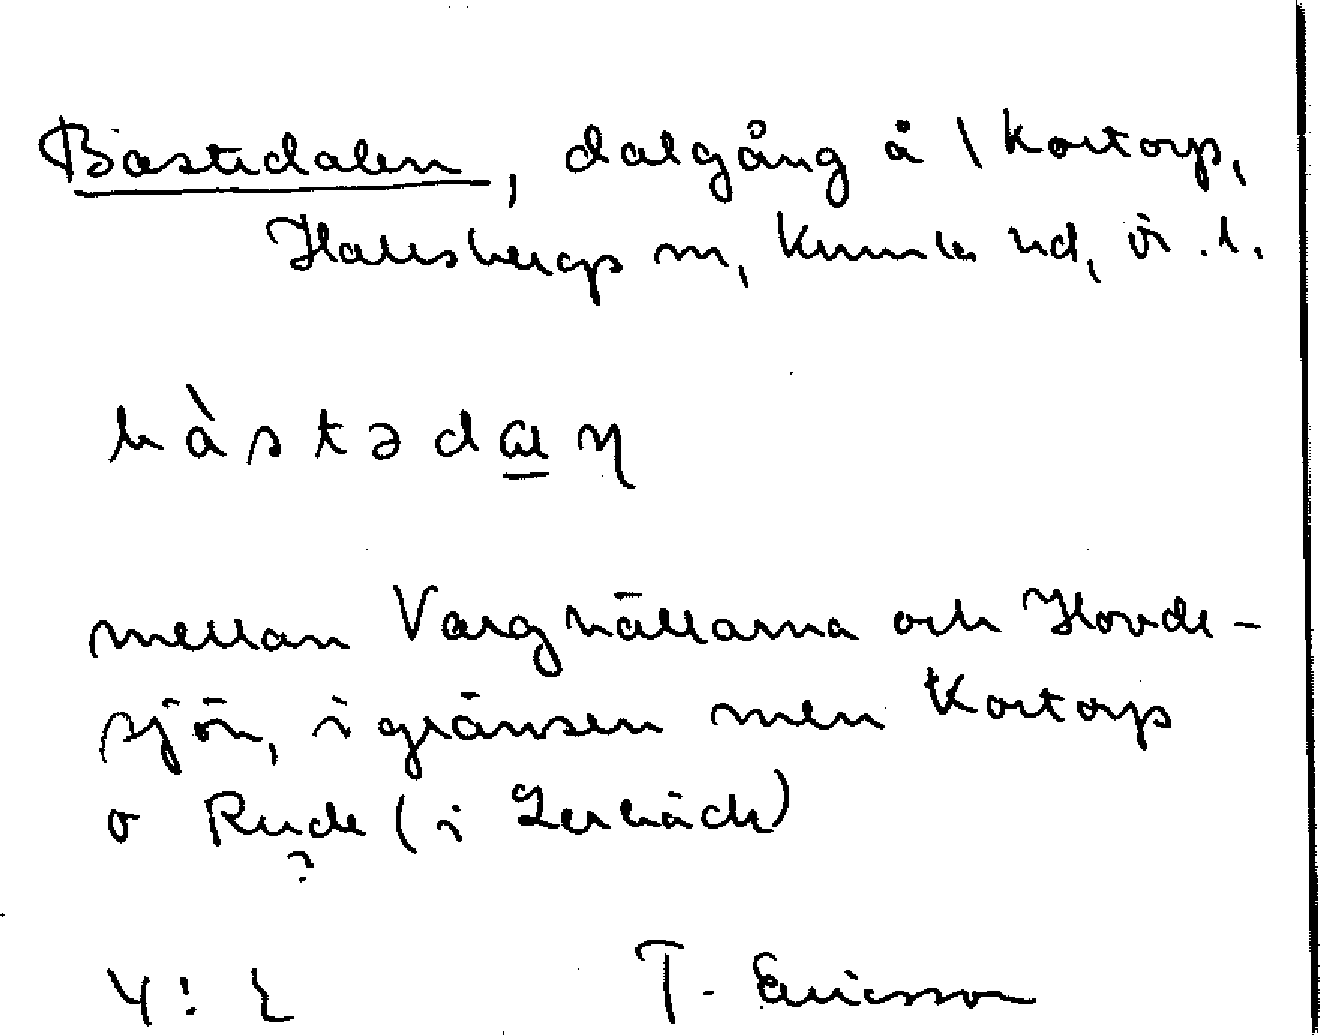 Bastedalen, dalgång å \ Kortorp,
Hallsbergs sn, Kumla hd, ör. l.
bàstədaɩ̲ɳ
mellan Varghällarna och Hovde-
sjön, i gränsen men Kortorp
o Rude (i Lerbäck)
?
4:2
T. Ericsson